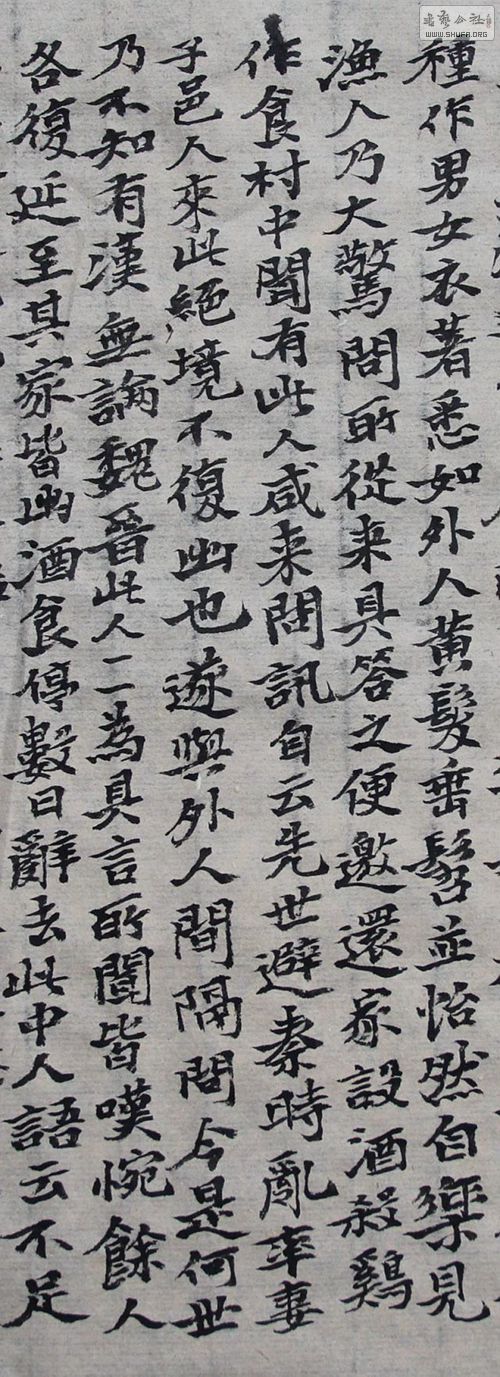 種作男女衣著悉如外人黄髮垂髫並怡然自樂見
漁人乃大驚問所從来具答之便邀還家設酒殺鷄
作食村中聞有此人咸来問訊自云先世避秦時亂率妻
子邑人來此絕境不復出也遂與外人間隔問今是何世
乃不知有漢無論魏晉此人一一為具言所聞皆嘆惋餘人
各復延至其家皆出酒食停數日辭去此中人語云不足
書藝公社
WWW.SHUFA.ORG